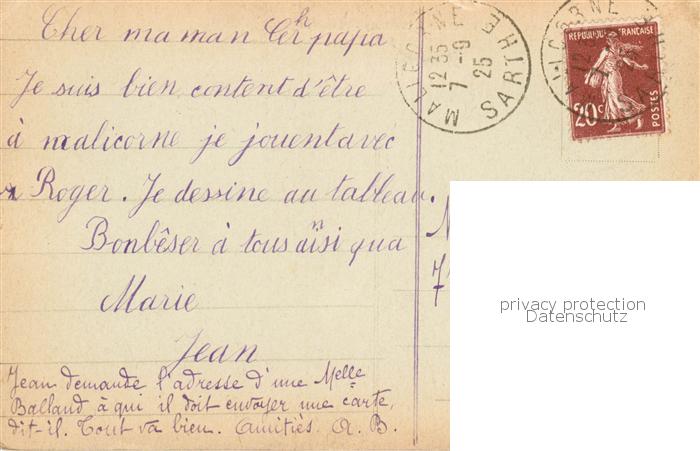 Cher maman Cerh papa
Je suis bien content d'être
à malicorne je jouent avec
Roger. Je dessine au tableau.
Bonbêser à tous aïnsi qua
Marie
Jean
Jean demande l'adresse d'une Melle
Balland à qui il doit envoyer une carte,
dit-il. Tout va bien. Amitiés A. B.
MALICORNE
12 35
7 -9
25
SARTHE
REPUBLIQUE FRANÇAISE
20c
POSTES
privacy protection
Datenschutz